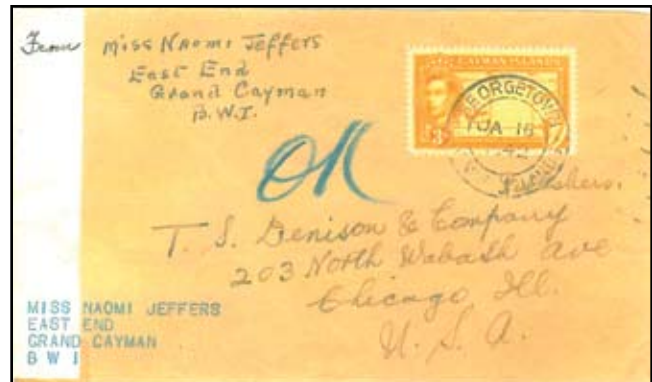 From Miss Naomi Jeffers
East End
Grand Cayman
B.W.I.
CAYMAN ISLANDS
GEORGETOWN
JA 18
42
OK
T. S. Denison & Company
203 North Wabash Ave
Chicago Ill.
U. S. A.
MISS NAOMI JEFFERS
EAST END
GRAND CAYMAN
B W I